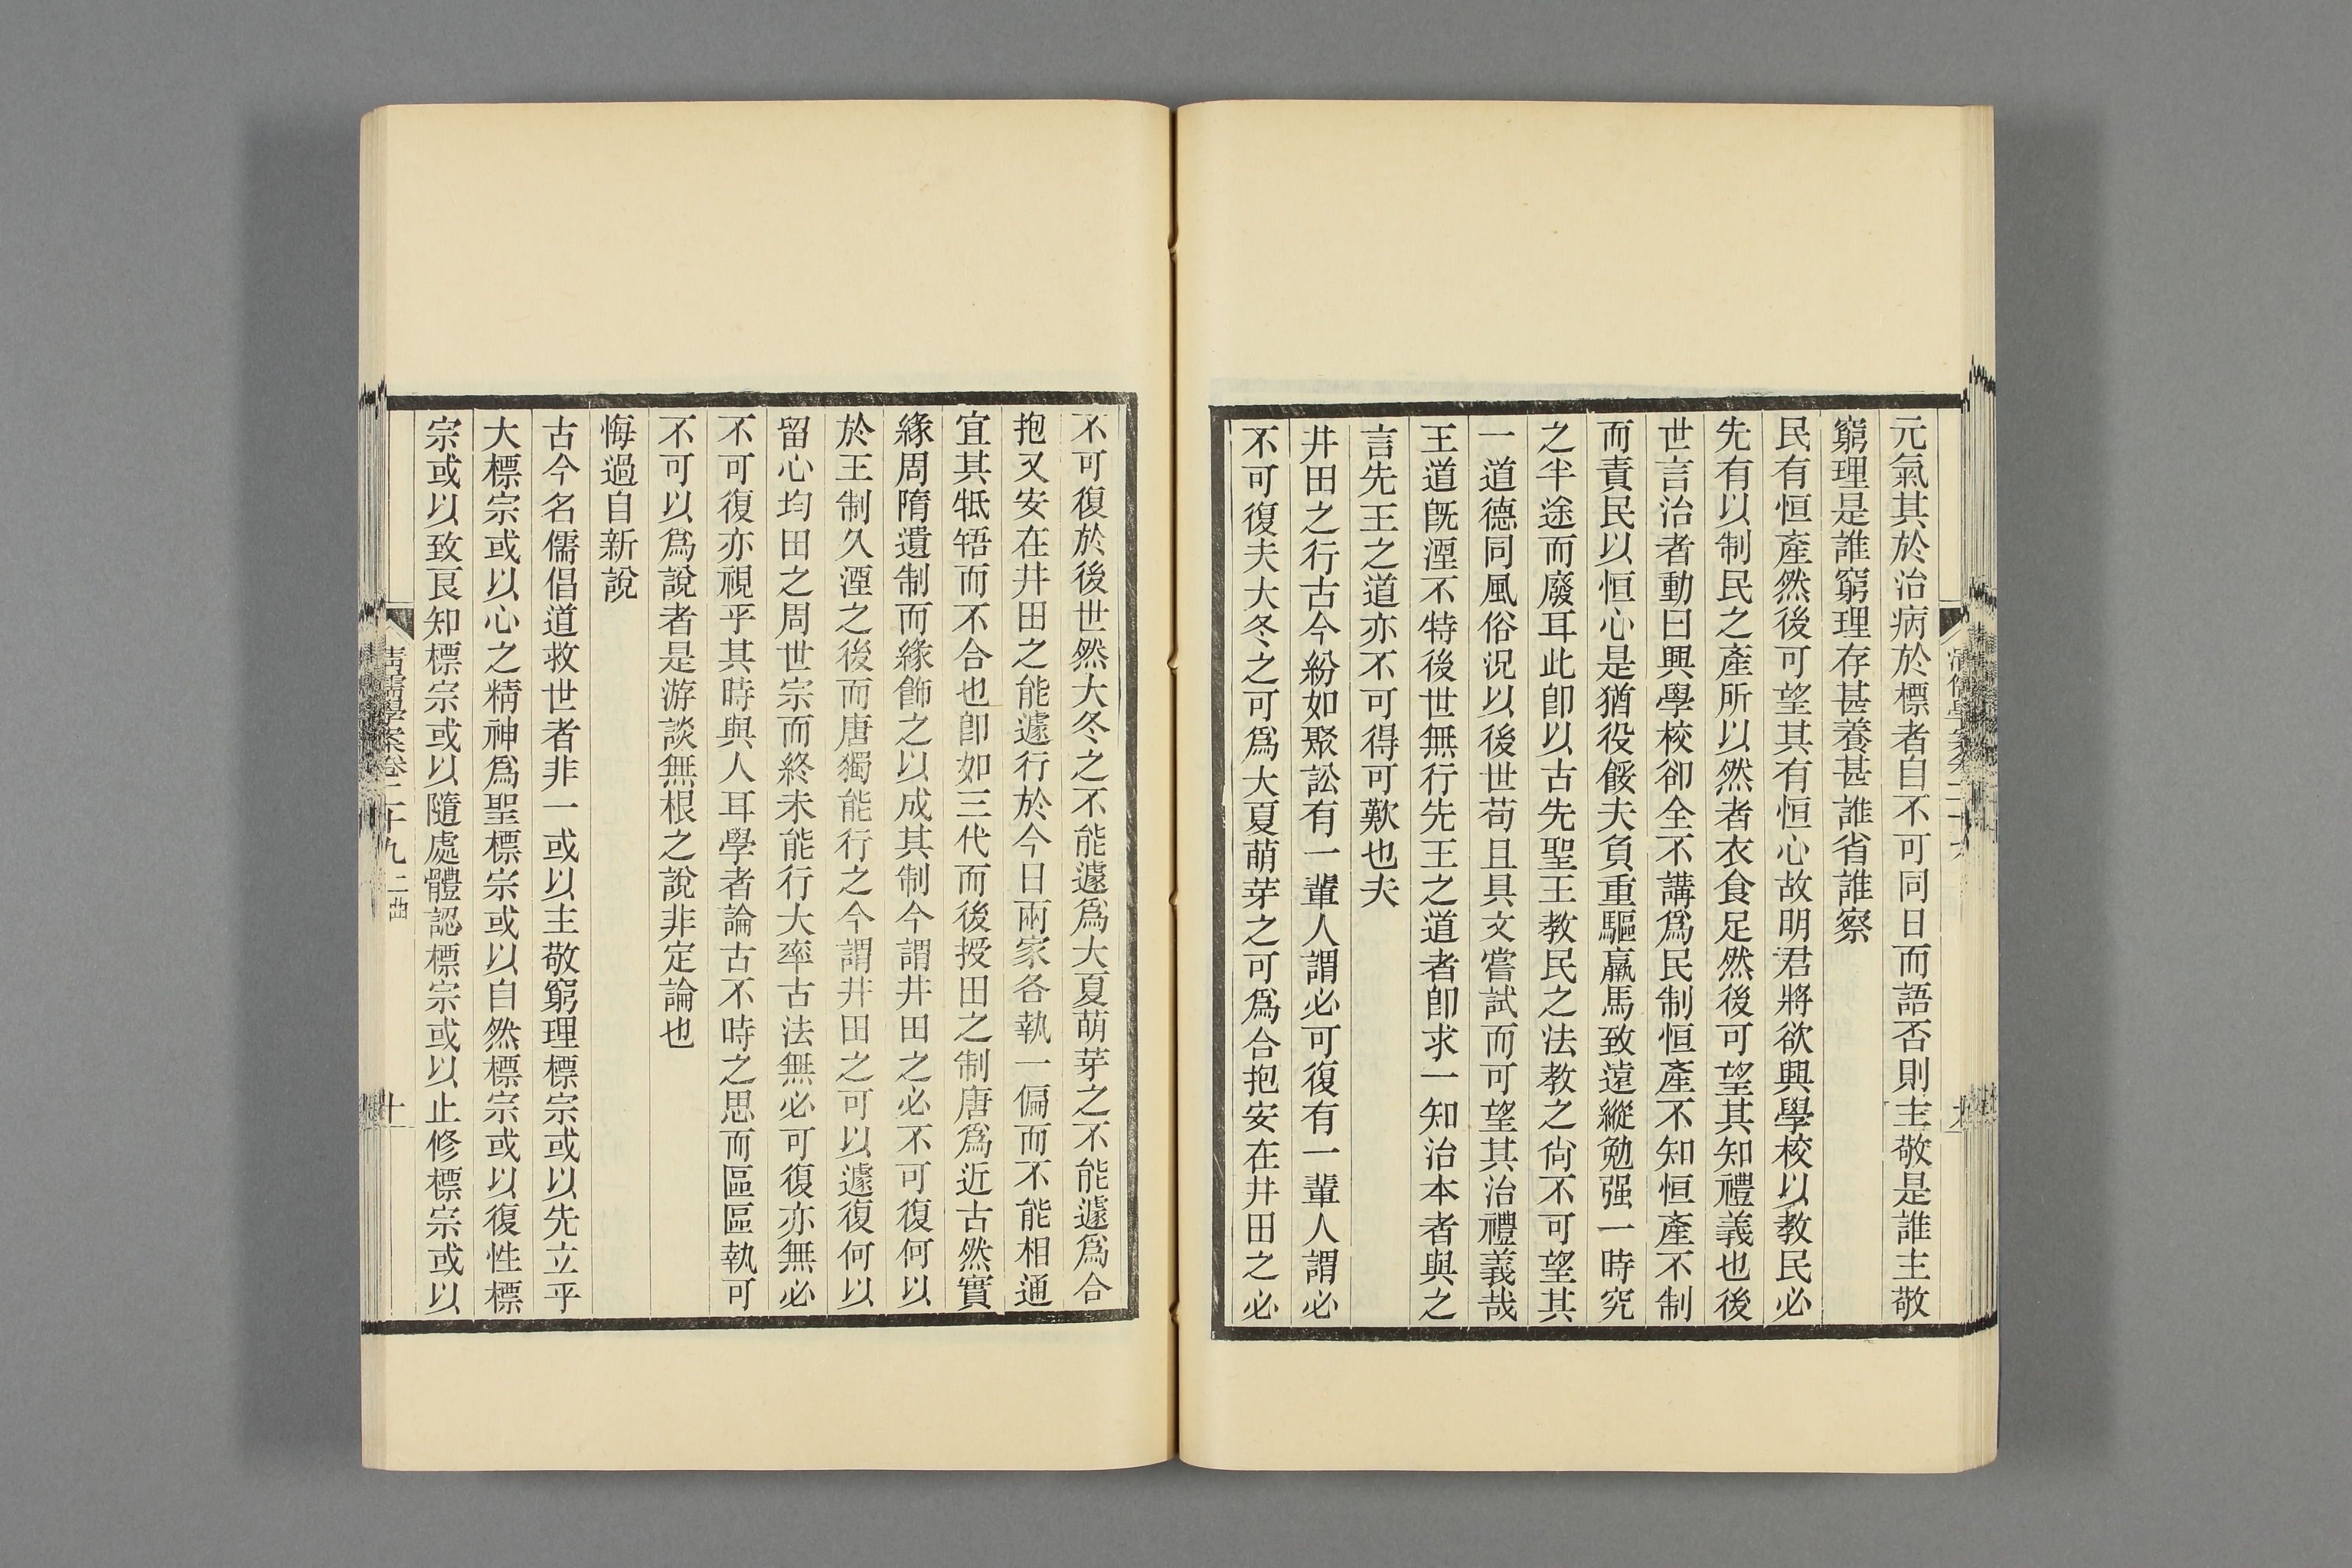 元氣其於治病於標者自不可同日而語否則主敬是誰主敬
窮理是誰窮理存甚養甚誰省誰察
民有恒產然後可望其有恒心故明君將欲興學校以教民必
先有以制民之產所以然者衣食足然後可望其知禮義也後
世言治者動曰興學校卻全不講爲民制恒產不知恒產不制
而責民以恒心是猶役餒夫負重驅羸馬致遠縱勉强一時究
之半途而廢耳此卽以古先聖王教民之法教之尙不可望其
一道德同風俗況以後世苟且具文嘗試而可望其治禮義哉
王道旣湮不特後世無行先王之道者卽求一知治本者與之
言先王之道亦不可得可歎也夫
井田之行古今紛如聚訟有一輩人謂必可復有一輩人謂必
不可復夫大冬之可爲大夏萌芽之可爲合抱安在井田之必
不可復於後世然大冬之不能遽爲大夏萌芽之不能遽爲合
抱又安在井田之能遽行於今日兩家各執一偏而不能相通
宜其牴牾而不合也卽如三代而後授田之制唐爲近古然實
緣周隋遺制而緣飾之以成其制今謂井田之必不可復何以
於王制久湮之後而唐獨能行之今謂井田之可以遽復何以
留心均田之周世宗而終未能行大率古法無必可復亦無必
不可復亦視乎其時與人耳學者論古不時之思而區區執可
不可以爲說者是游談無根之說非定論也
悔過自新說
古今名儒倡道救世者非一或以主敬窮理標宗或以先立乎
大標宗或以心之精神爲聖標宗或以自然標宗或以復性標
宗或以致良知標宗或以隨處體認標宗或以止修標宗或以
清儒學案卷二十九 二曲
十